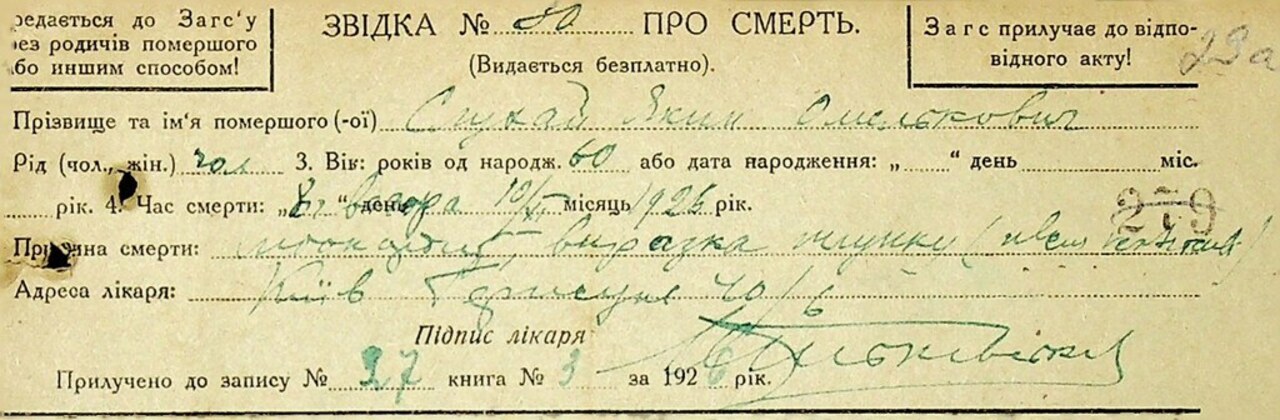 редається до Загс'у
ез родичів помершого
бо иншим способом!
ЗВІДКА № 80 ПРО СМЕРТЬ.
(Видається безплатно).
Загс прилучає до відпо-
відного акту!
29а
Прізвище та ім'я помершого (-ої) Слухай Яким Омелькович
Рід (чол., жін.) чол 3. Вік: років од народж. 60 або дата народження: „ “ день міс.
рік. 4. Час смерти: „ “ день 10/XI місяць 1926 рік.
279
Причина смерти: виразка шлунку (ulcus ventriculi)
Адреса лікаря: Київ 40/6
Підпис лікаря
Прилучено до запису № 37 книга № 3 за 1926 рік.